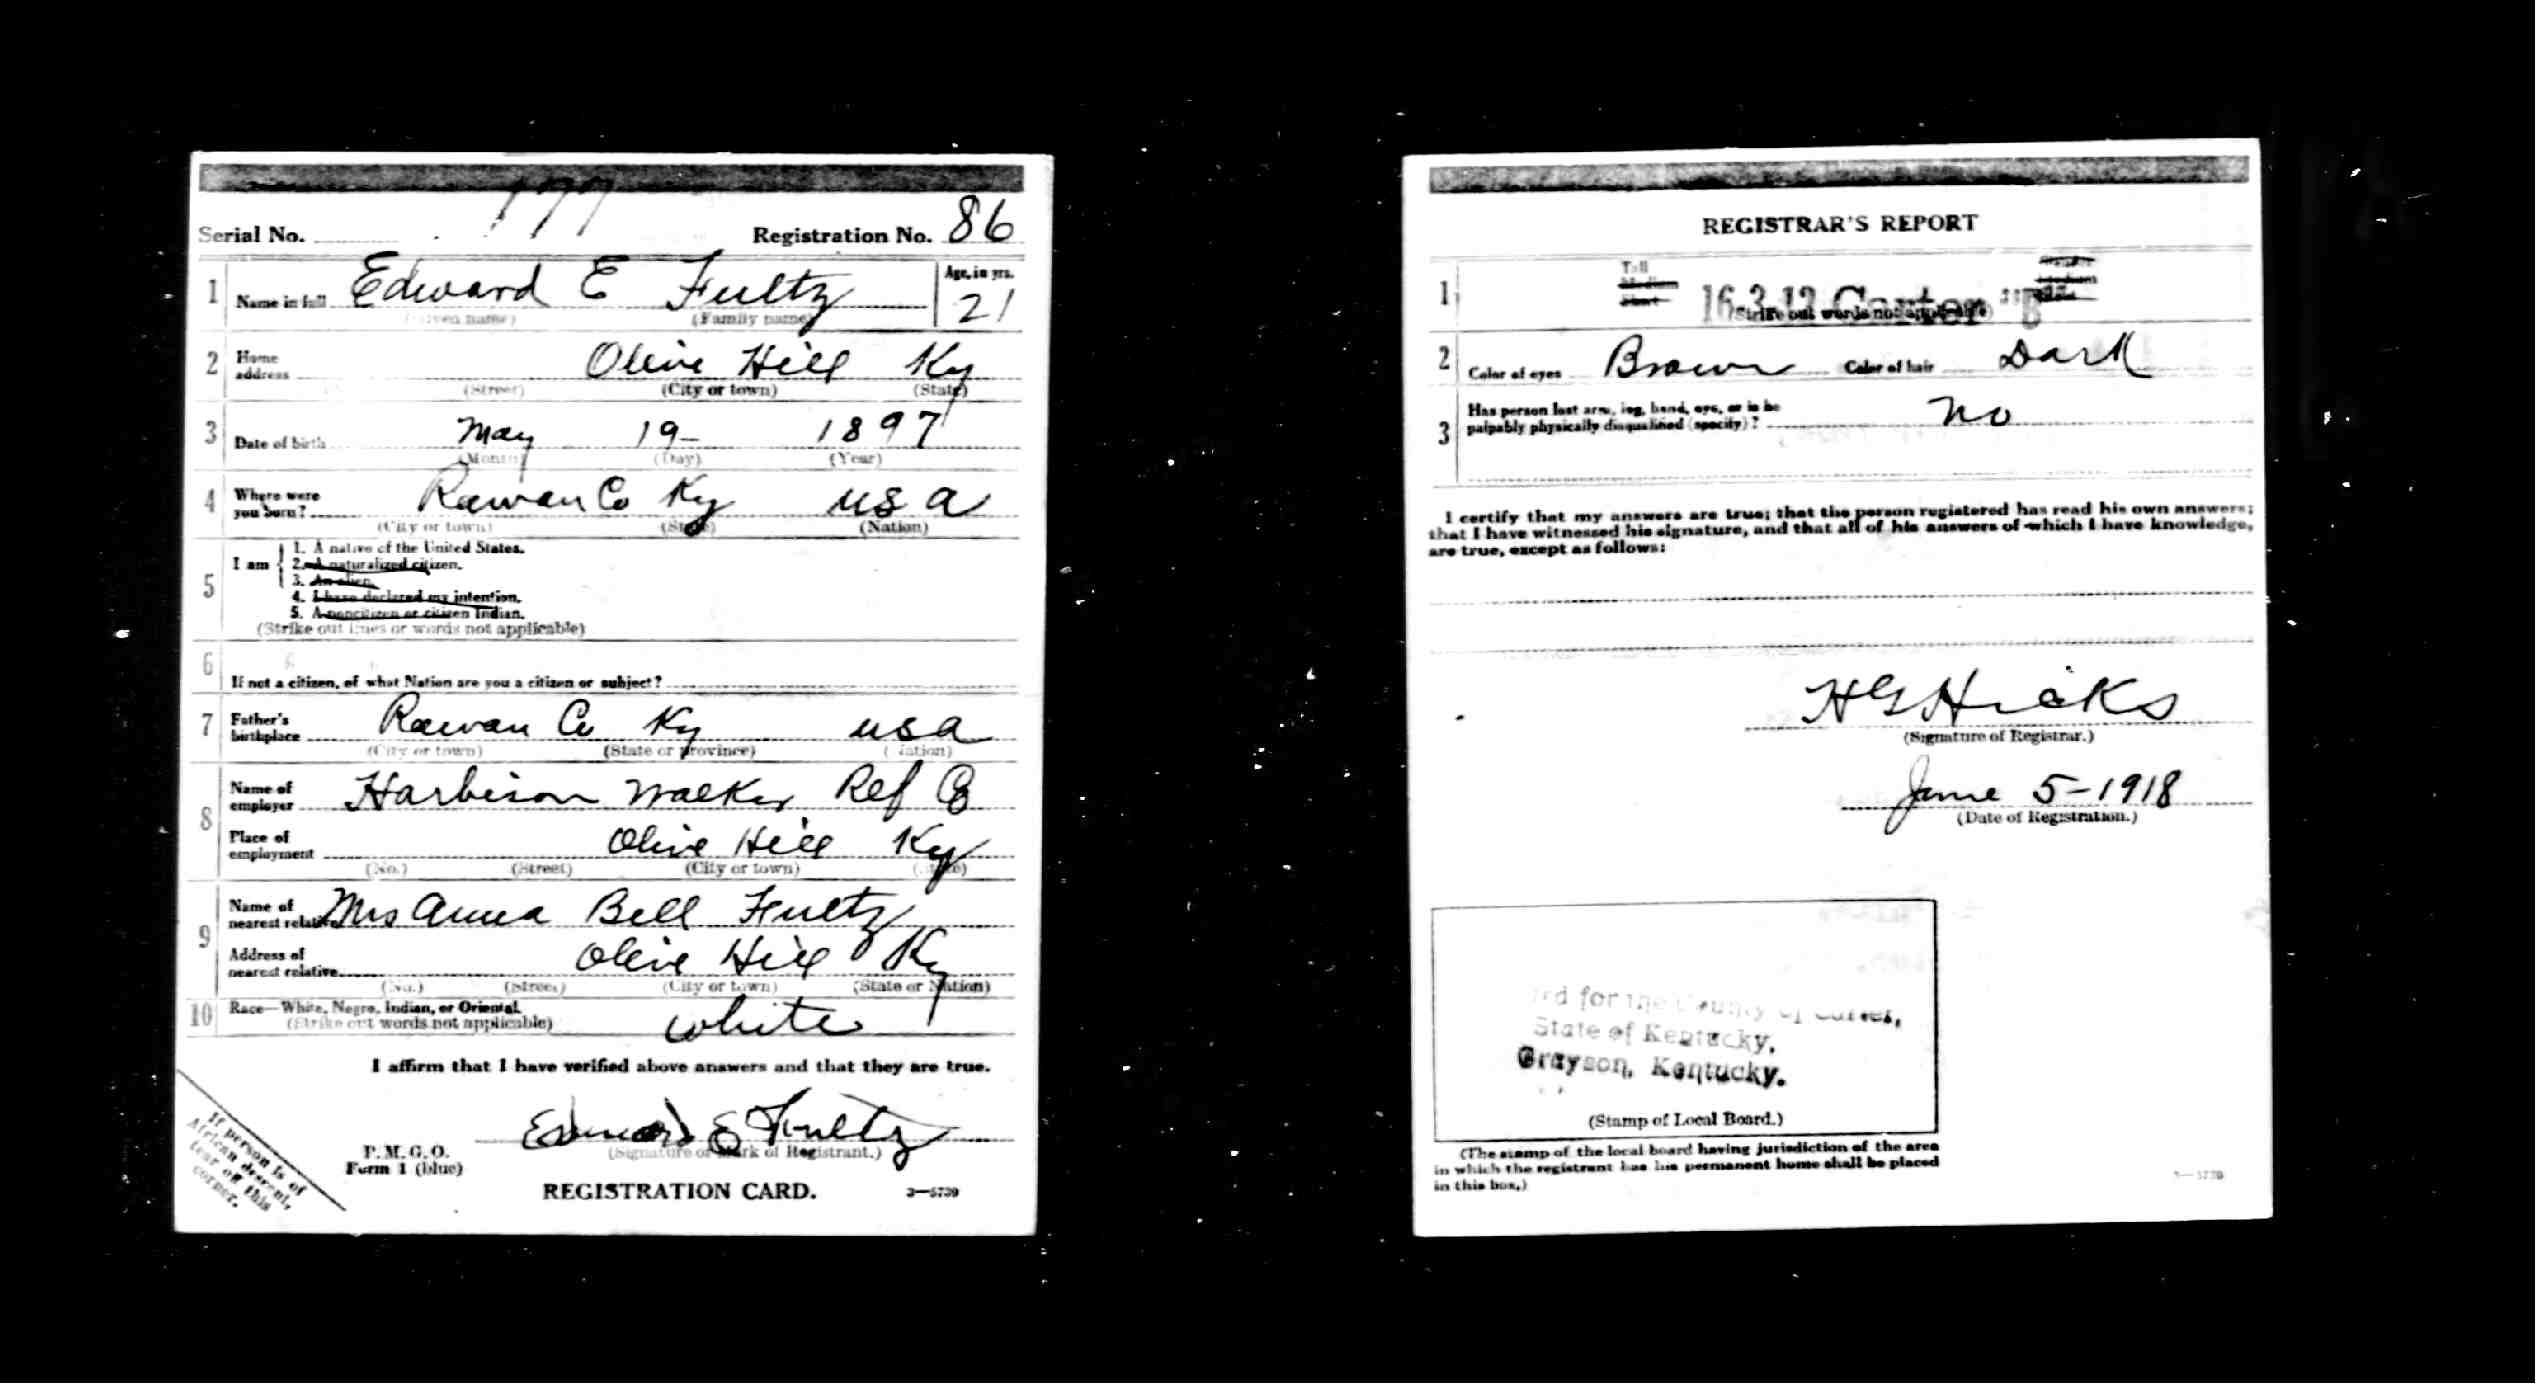 177
Serial No. Registration No. 86
1 Name in full Edward E Fultz Age, in yrs. 21
(Given name) (Family name)
2 Home address Olive Hill Ky
(Street) (City or town) (State)
3 Date of birth May 19- 1897
(Month) (Day) (Year)
4 Where were you born? Rowan Co Ky USA
(City or town) (State) (Nation)
5 I am
1. A native of the United States.
2. A naturalized citizen.
3. An alien.
4. I have declared my intention.
5. A noncitizen or citizen Indian.
(Strike out lines or words not applicable)
6 If not a citizen, of what Nation are you a citizen or subject?
7 Father's birthplace Rowan Co Ky USA
(City or town) (State or province) (Nation)
8 Name of employer Harbison Walker Ref Co
Place of employment Olive Hill Ky
(No.) (Street) (City or town) (State)
9 Name of nearest relative Mrs Anna Bell Fultz
Address of nearest relative Olive Hill Ky
(No.) (Street) (City or town) (State or Nation)
10 Race—White, Negro, Indian, or Oriental.
(Strike out words not applicable) White
I affirm that I have verified above answers and that they are true.
Edward E Fultz
(Signature or Mark of Registrant.)
P. M. G. O.
Form 1 (blue)
REGISTRATION CARD. 3—5739
If person is of
African descent,
tear off this
corner.
REGISTRAR'S REPORT
1 Tall Medium Short 16-3-12 Carter "B"
(Strike out words not applicable)
2 Color of eyes Brown Color of hair Dark
3 Has person lost arm, leg, hand, eye, or is he
palpably physically disqualified (specify)? No
I certify that my answers are true; that the person registered has read his own answers;
that I have witnessed his signature, and that all of his answers of which I have knowledge,
are true, except as follows:
H G Hicks
(Signature of Registrar.)
June 5-1918
(Date of Registration.)
for the County of Carter,
State of Kentucky,
Grayson, Kentucky.
(Stamp of Local Board.)
(The stamp of the local board having jurisdiction of the area
in which the registrant has his permanent home shall be placed
in this box.)
3—5739